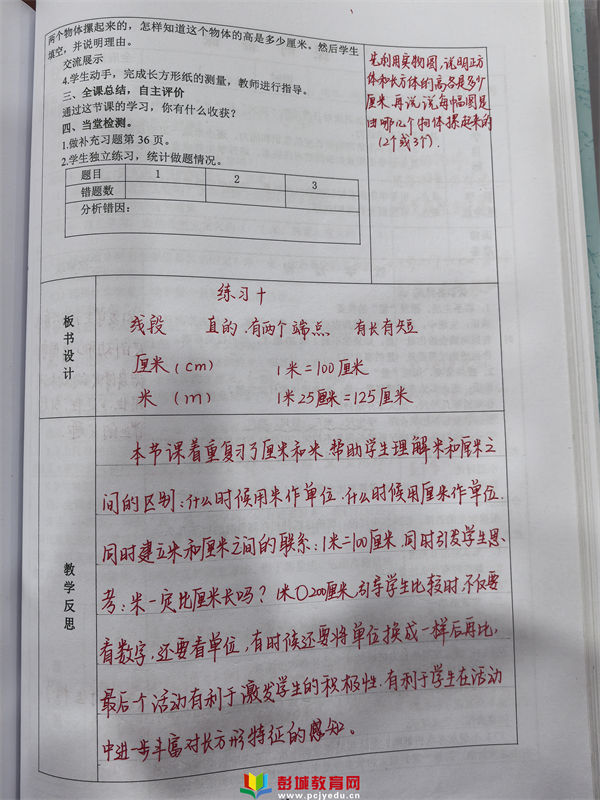 两个物体摞起来的，怎样知道这个物体的高是多少厘米。然后学生
填空，并说明理由。
交流展示
4.学生动手，完成长方形纸的测量，教师进行指导。
三、全课总结，自主评价
通过这节课的学习，你有什么收获？
四、当堂检测。
1.做补充习题第 36 页。
2.学生独立练习，统计做题情况。
题目 1 2 3
错题数
分析错因：
先利用实物图，说明正方
体和长方体的高各是多少
厘米，再说说每幅图是
由哪几个物体摞起来的
(2个或3个).
板书设计
练习十
线段 直的 有两个端点 有长有短
厘米（cm） 1米=100厘米
米（m） 1米25厘米=125厘米
教学反思
本节课着重复习了厘米和米，帮助学生理解米和厘米之
间的区别：什么时候用米作单位，什么时候用厘米作单位.
同时建立米和厘米之间的联系：1米=100厘米，同时引发学生思
考：米一定比厘米长吗？1米○200厘米，引导学生比较时，不仅要
看数字，还要看单位，有时候还要将单位换成一样后再比，
最后一个活动有利于激发学生的积极性，有利于学生在活动
中进一步丰富对长方形特征的感知。
彭城教育网
www.pcjyedu.cn